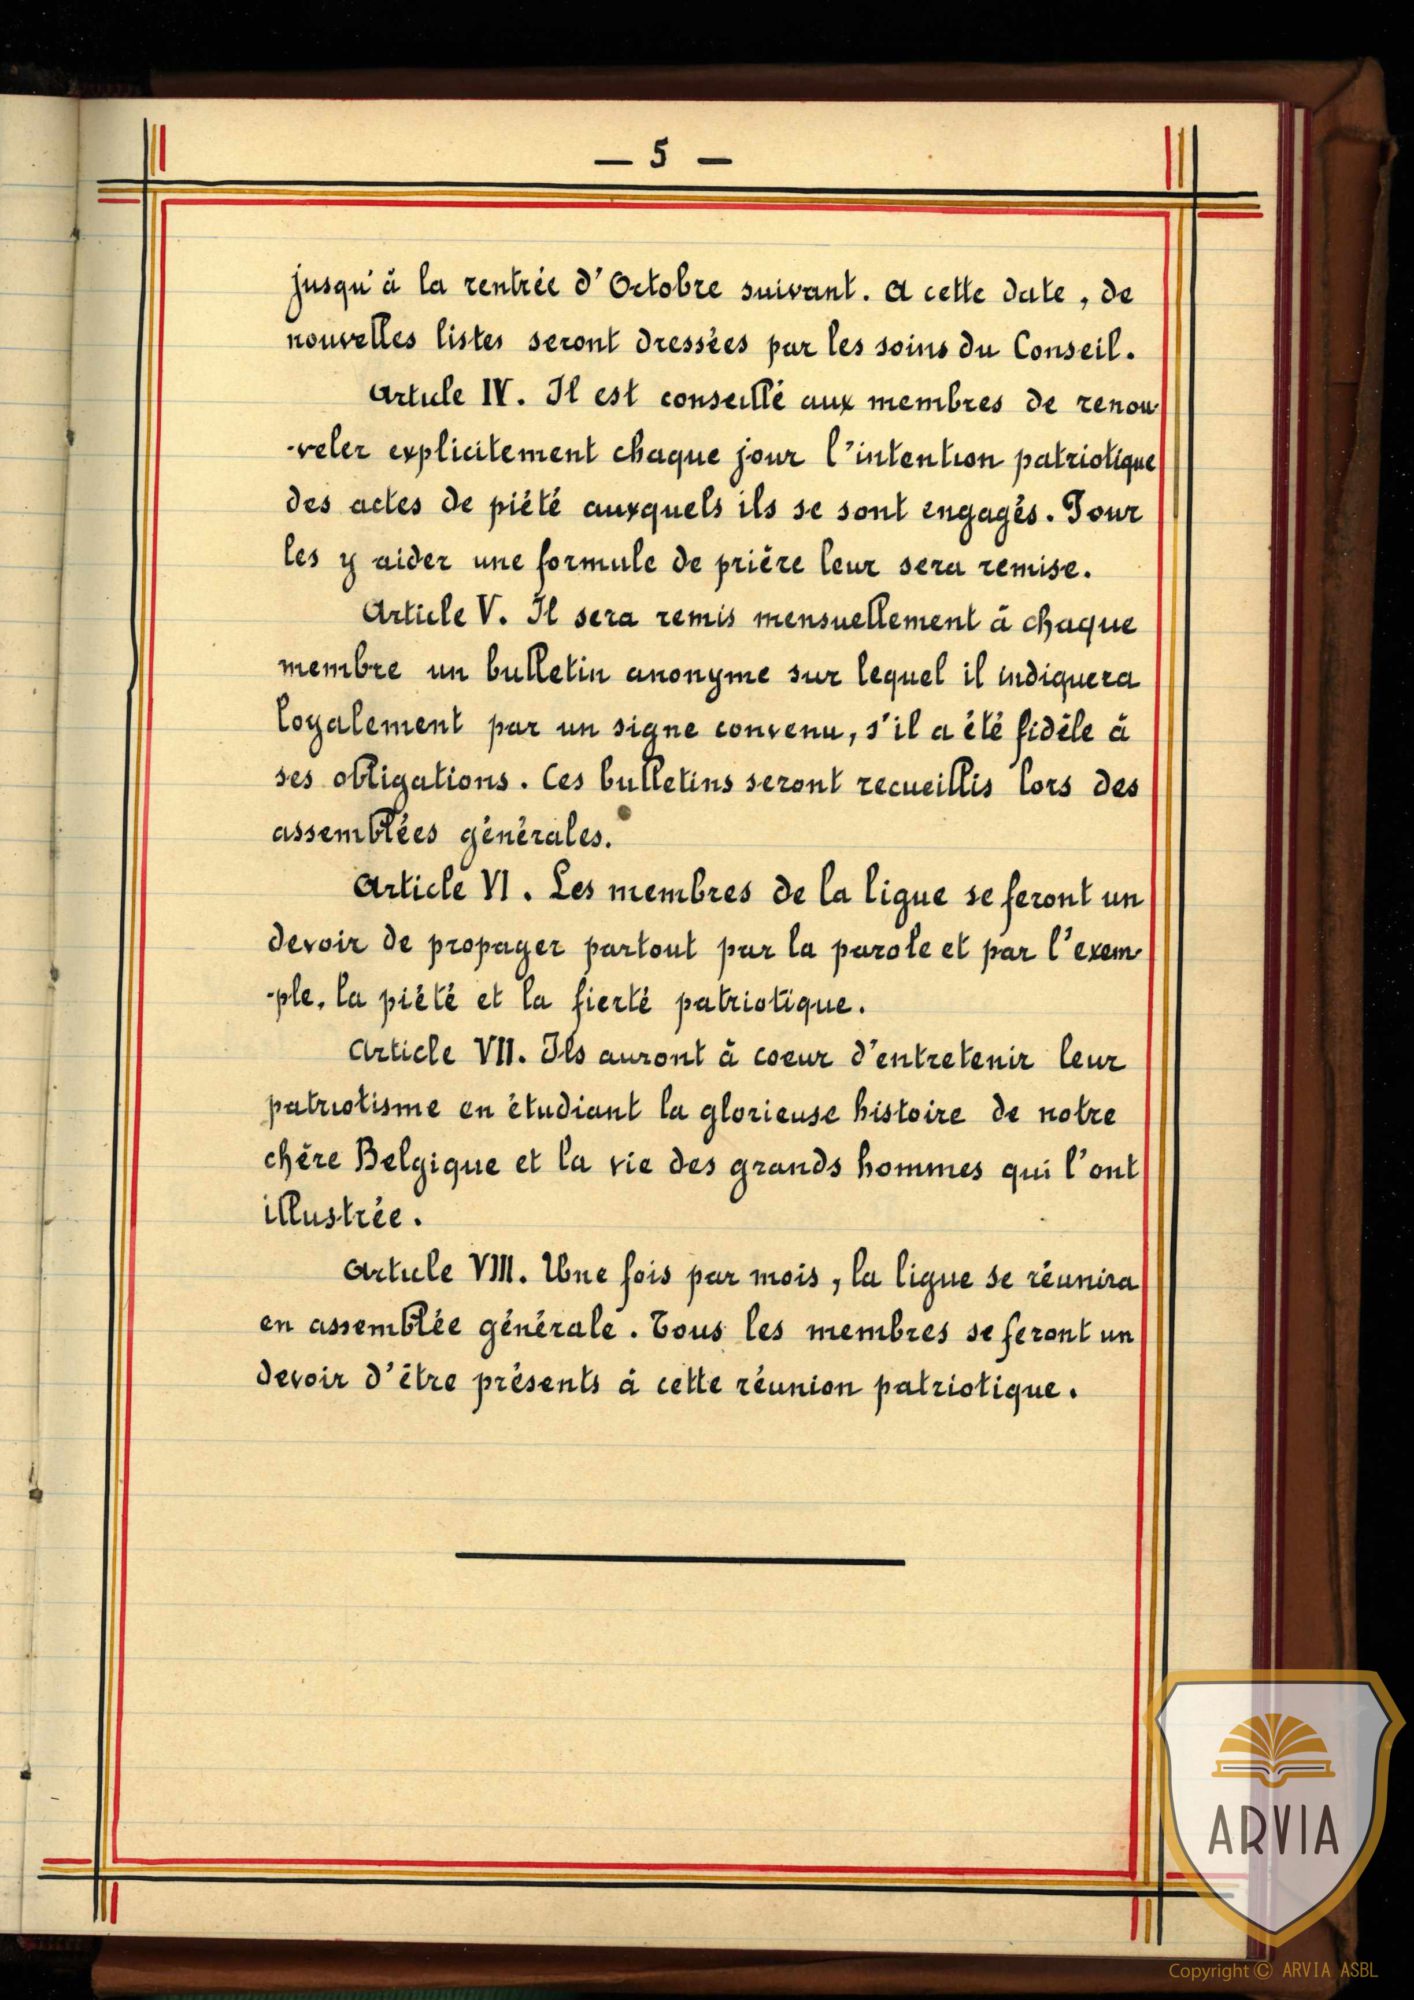 — 5 —
jusqu'à la rentrée d'Octobre suivant. A cette date, de
nouvelles listes seront dressées par les soins du Conseil.
Article IV. Il est conseillé aux membres de renou-
-veler explicitement chaque jour l'intention patriotique
des actes de piété auxquels ils se sont engagés. Pour
les y aider une formule de prière leur sera remise.
Article V. Il sera remis mensuellement à chaque
membre un bulletin anonyme sur lequel il indiquera
loyalement par un signe convenu, s'il a été fidèle à
ses obligations. Ces bulletins seront recueillis lors des
assemblées générales.
Article VI. Les membres de la ligue se feront un
devoir de propager partout par la parole et par l'exem-
-ple, la piété et la fierté patriotique.
Article VII. Ils auront à coeur d'entretenir leur
patriotisme en étudiant la glorieuse histoire de notre
chère Belgique et la vie des grands hommes qui l'ont
illustrée.
Article VIII. Une fois par mois, la ligue se réunira
en assemblée générale. Tous les membres se feront un
devoir d'être présents à cette réunion patriotique.
ARVIA
Copyright © ARVIA ASBL